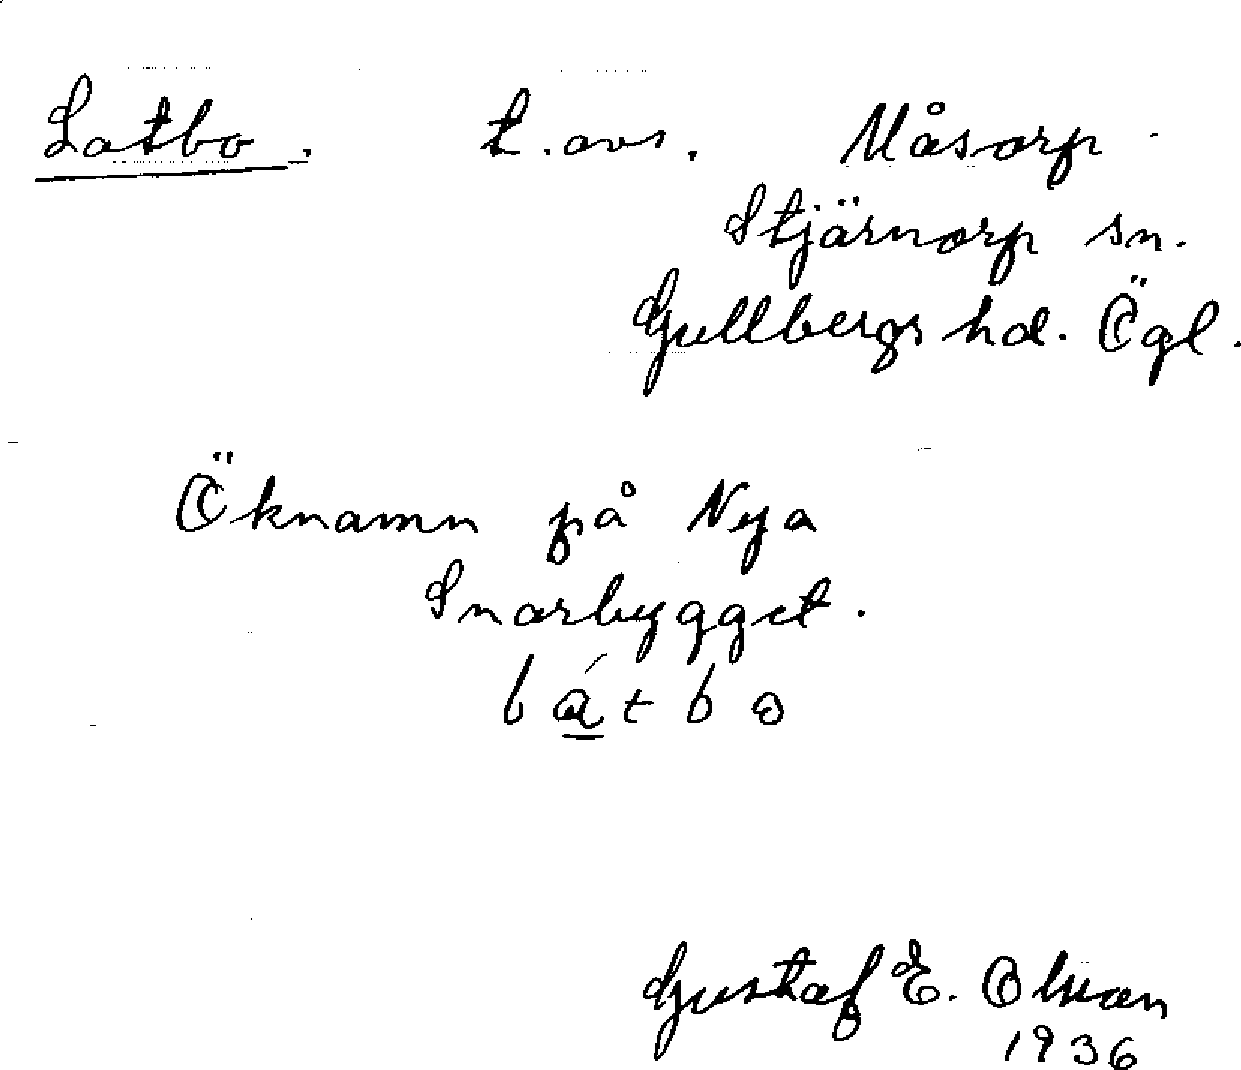 Latbo. t. avs. Måsorp
Stjärnorp sn.
Gullbergs hd. Ögl.
Öknamn på Nya
Snorbygget.
Gustaf E. Olsson
1936